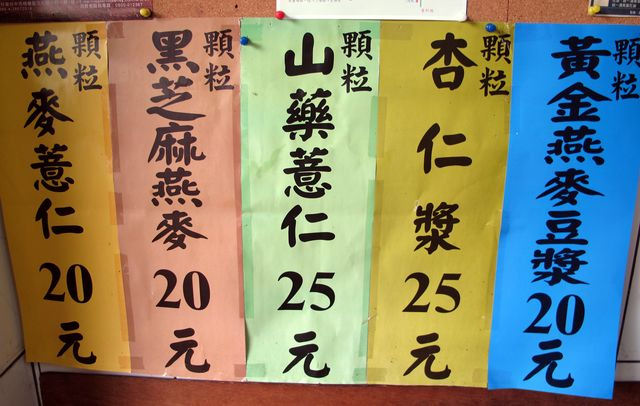 顆粒
燕麥薏仁20元
顆粒
黑芝麻燕麥20元
顆粒
山藥薏仁25元
顆粒
杏仁漿25元
顆粒
黃金燕麥豆漿20元